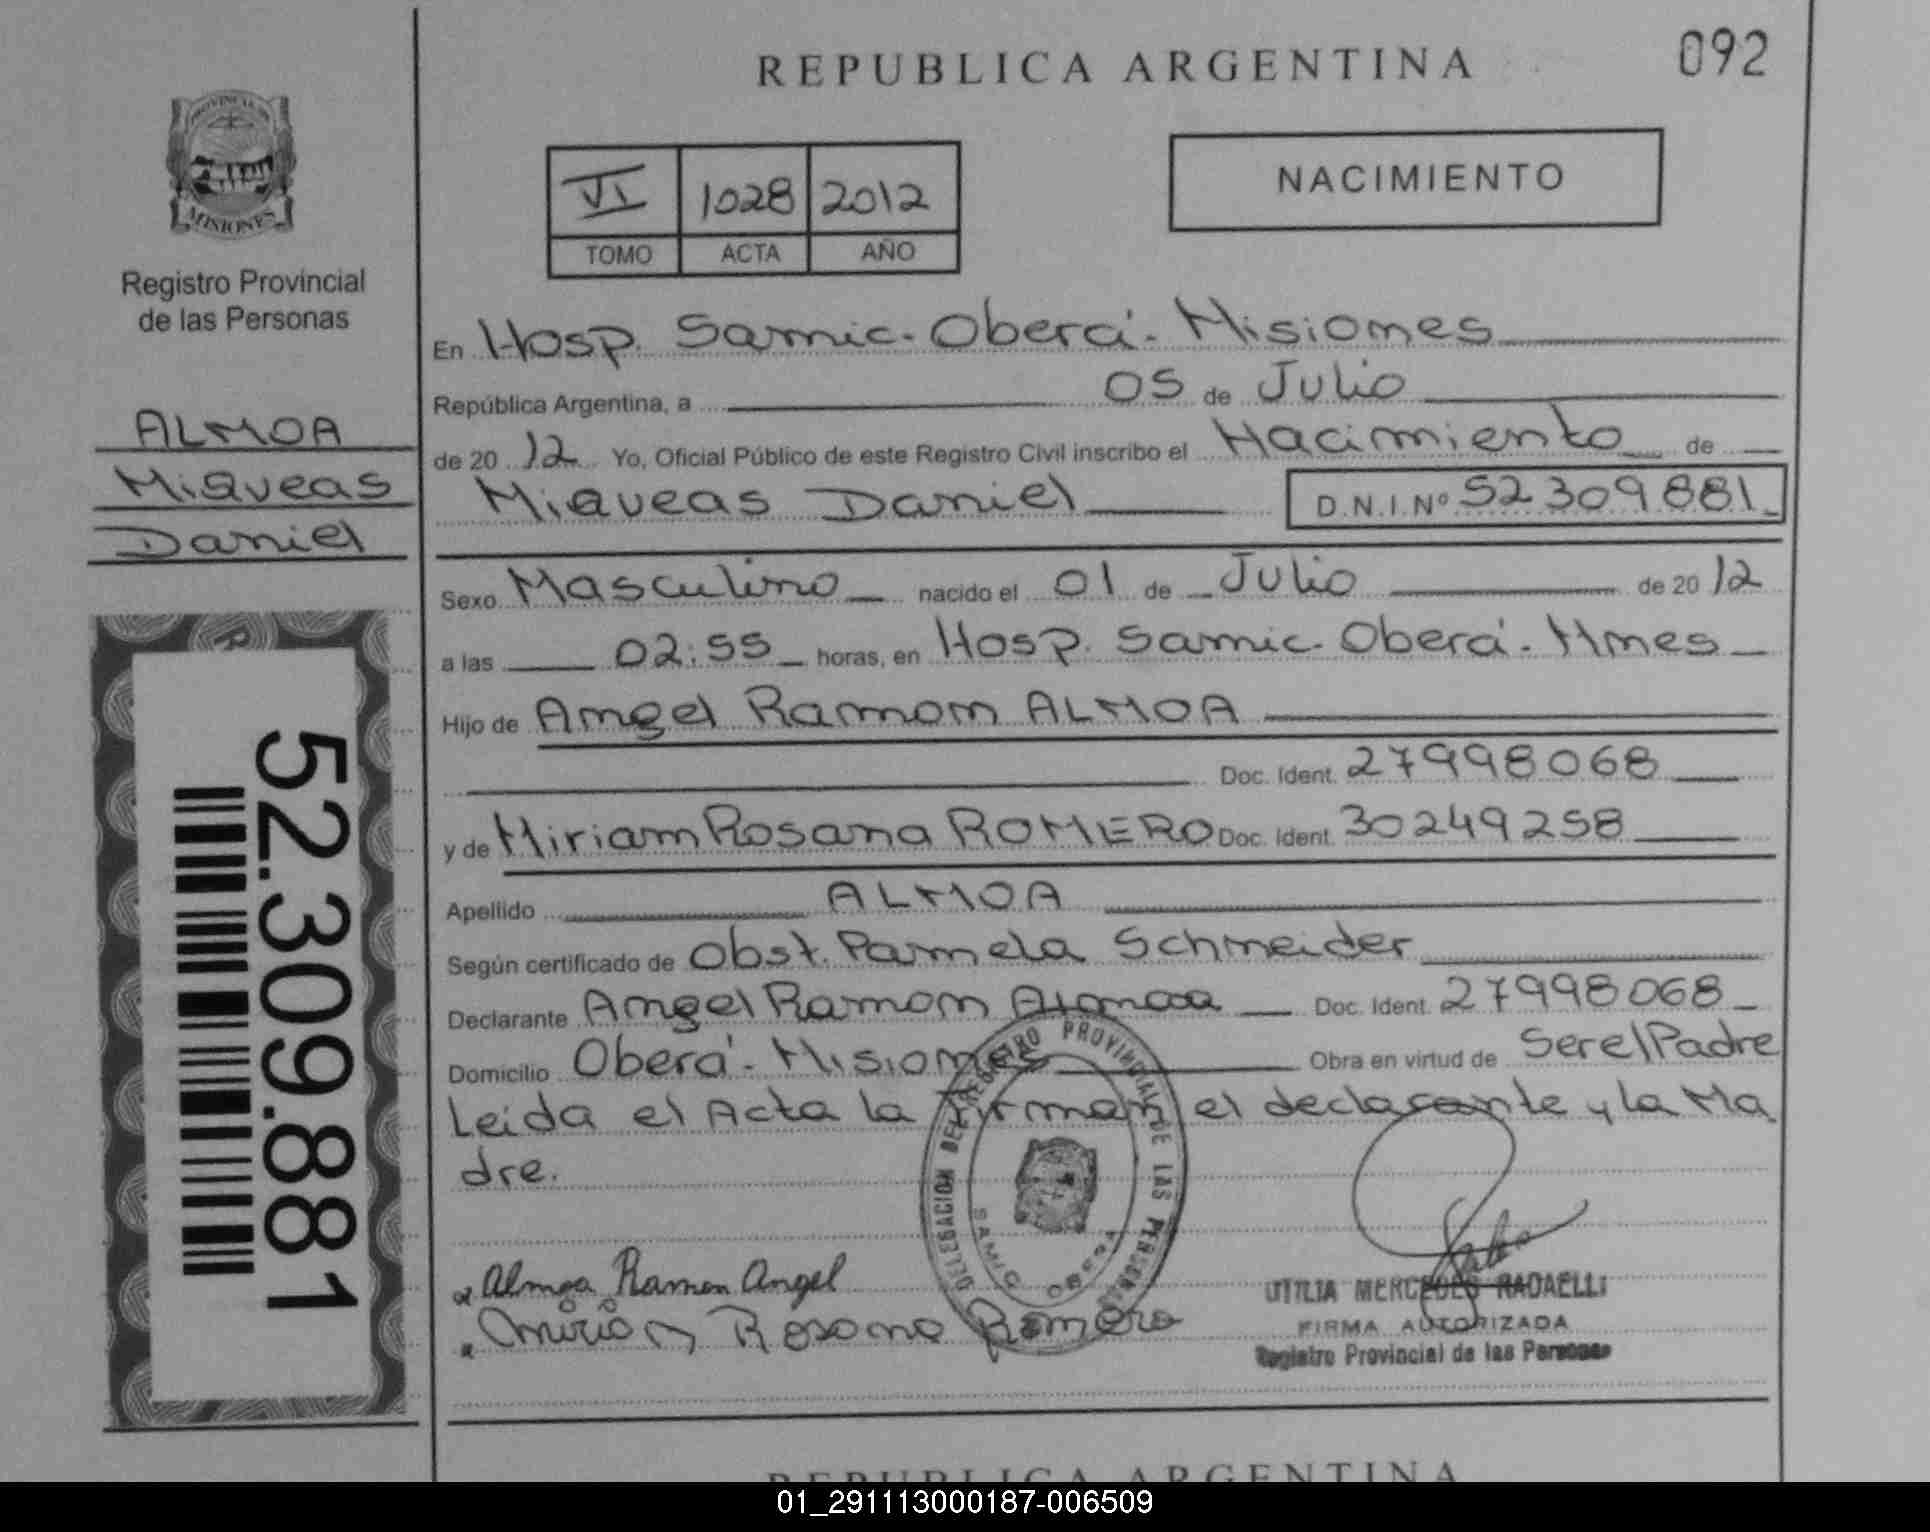 REPUBLICA ARGENTINA
092
PROVINCIA DE
MISIONES
Registro Provincial
de las Personas
VI 1028 2012
TOMO ACTA AÑO
NACIMIENTO
ALMOA
Miqueas
Daniel
52.309.881
En Hosp. Samic. Oberá. Misiones
República Argentina, a 05 de Julio
de 2012 Yo, Oficial Público de este Registro Civil inscribo el Nacimiento de
Miqueas Daniel D.N.I. Nº 52309881
Sexo Masculino nacido el 01 de Julio de 2012
a las 02:55 horas, en Hosp. Samic. Oberá. Mnes
Hijo de Angel Ramon ALMOA
Doc. Ident. 27998068
y de Miriam Rosana ROMERO Doc. Ident. 30249258
Apellido ALMOA
Según certificado de Obst. Pamela Schneider
Declarante Angel Ramon Almoa Doc. Ident. 27998068
Domicilio Oberá - Misiones Obra en virtud de Ser el Padre
Leida el Acta la firman el declarante y la Ma
dre.
DELEGACION DEL REGISTRO PROVINCIAL DE LAS PERSONAS
SAMIC OBERA
Almoa Ramon Angel
Mirian Rosana Romero
OTILIA MERCEDES RADAELLI
FIRMA AUTORIZADA
Registro Provincial de las Personas
REPUBLICA ARGENTINA
01_291113000187-006509